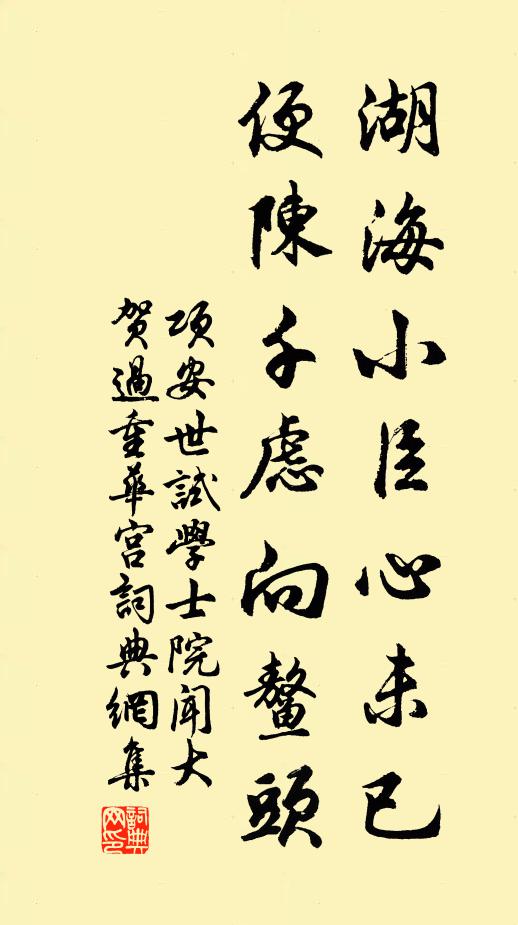 湖海小臣心未已
便陳千慮向鰲頭
項安世試學士院聞大
賀過重華宮詞典網集
詞典网印